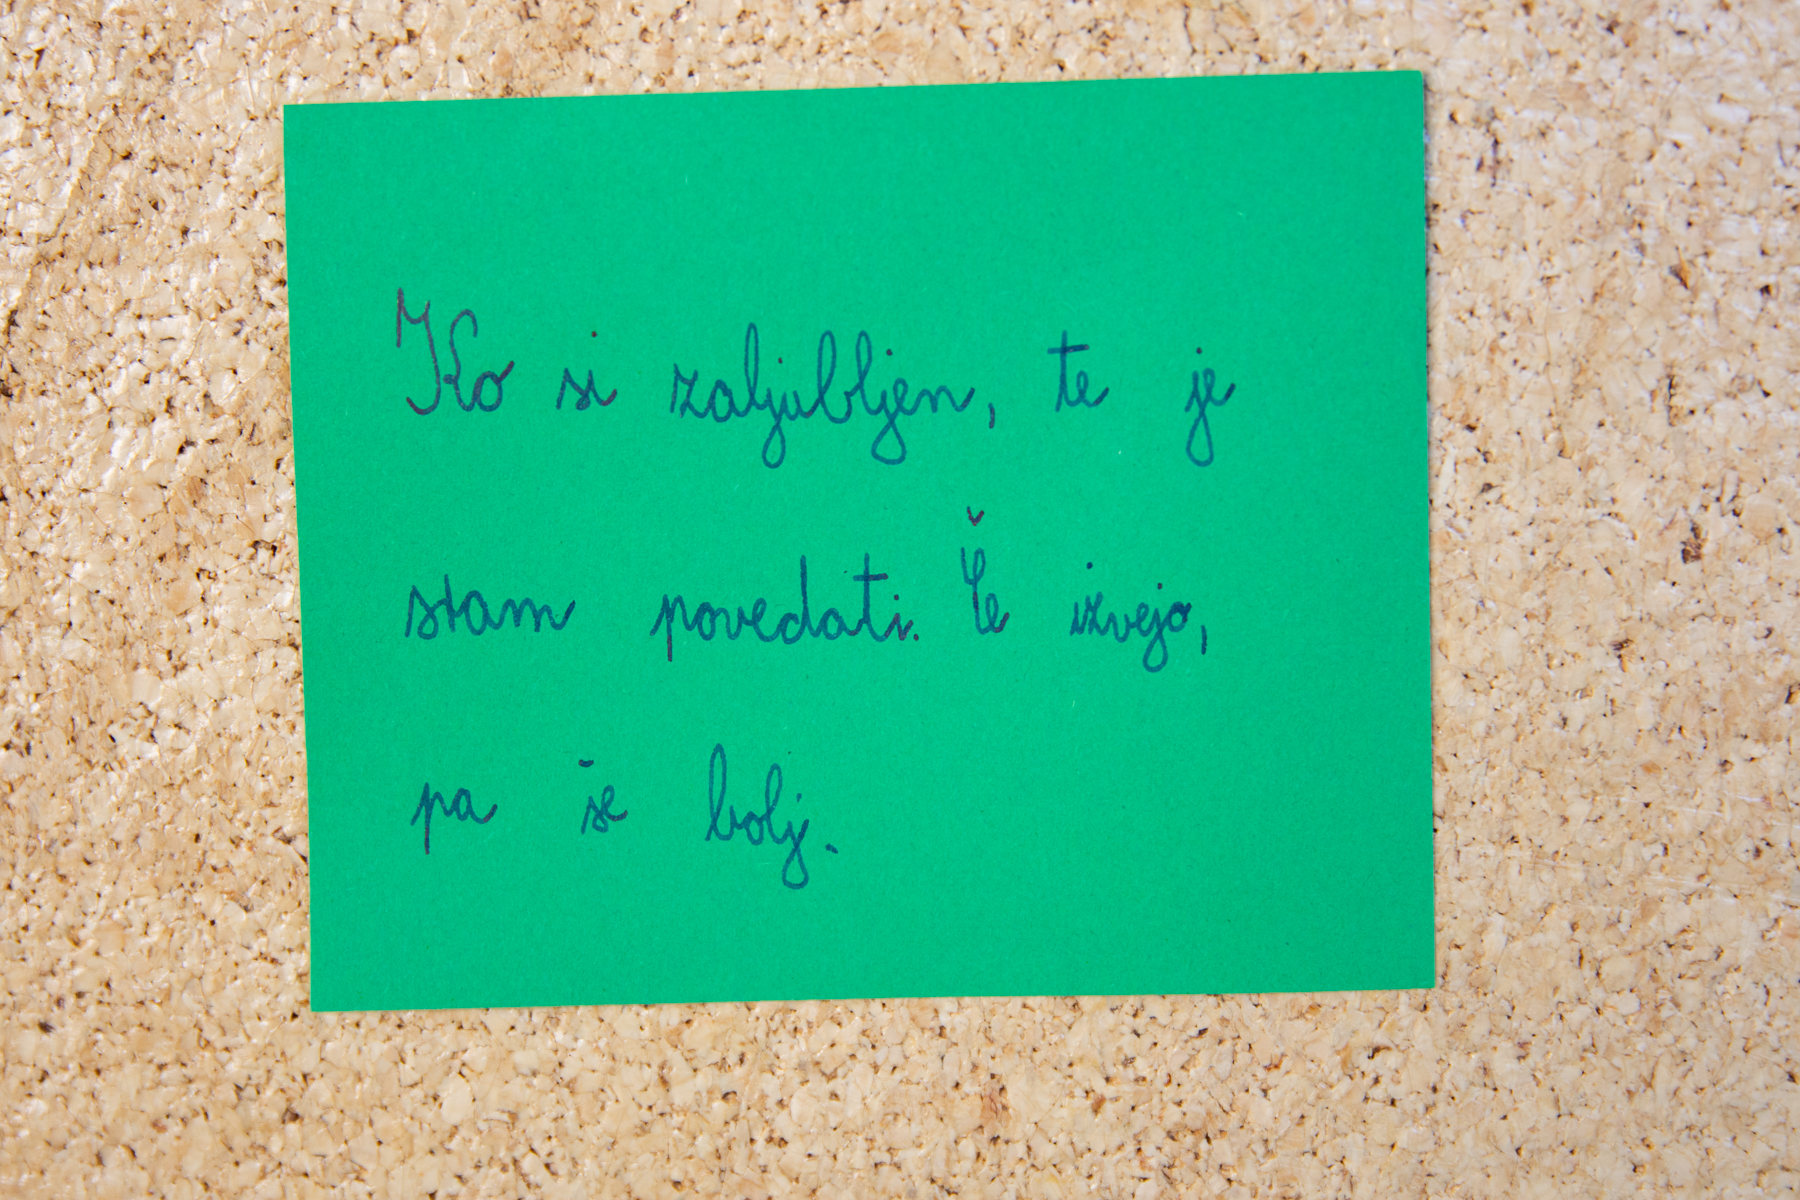 Ko si zaljubljen, te je
stam povedati. Če izvejo,
pa še bolj.